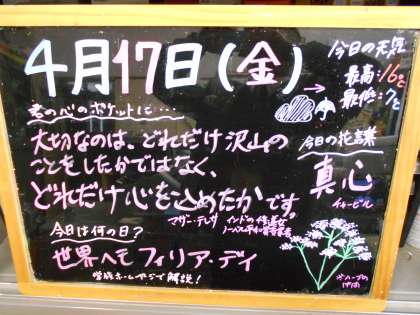 4月17日(金)
今日の天気
最高:16℃
最低:7℃
君の心のポケットに…
大切なのは、どれだけ沢山の
ことをしたかではなく、
どれだけ心をこめたかです。
マザー・テレサ
インドの修道女
ノーベル平和賞受賞者
今日の花言葉
真心
チャービル
今日は何の日?
世界ヘモフィリア・デイ
学校ホームページで解説!
※ハーブの